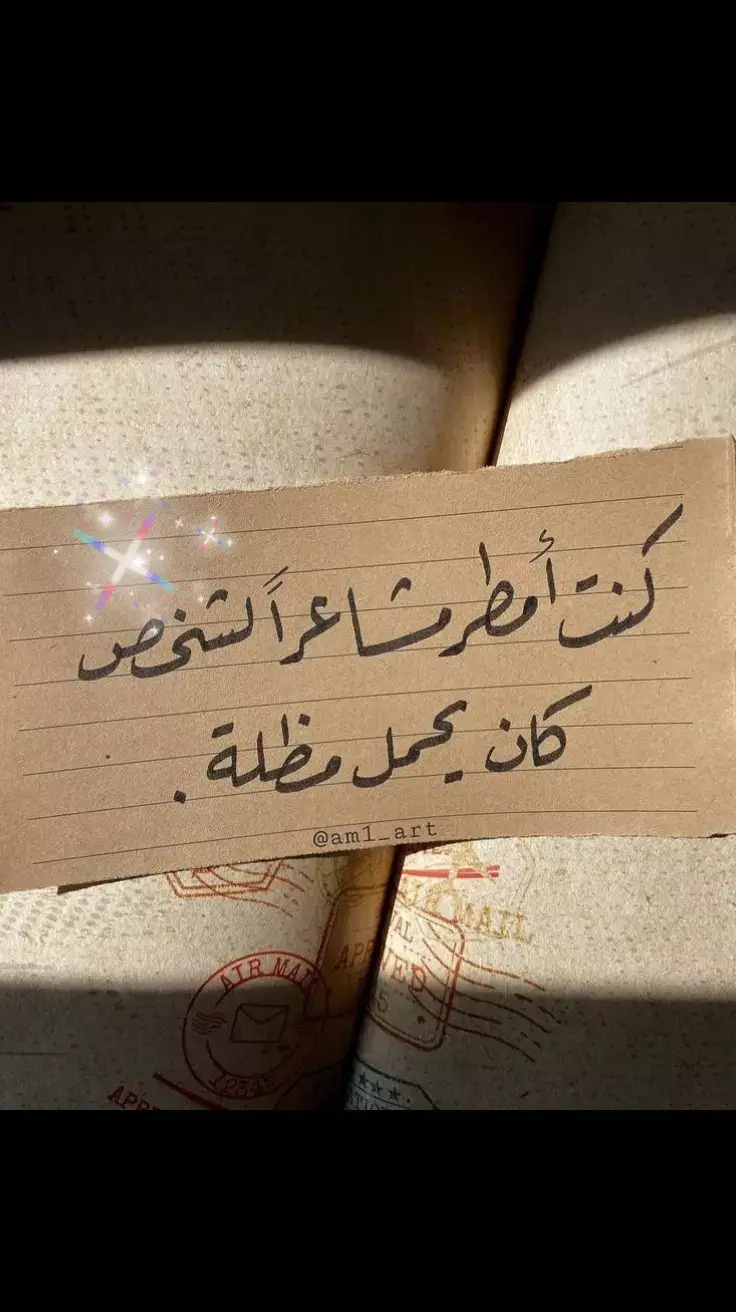 كنت أمطر مشاعراً لشخص
كان يحمل مظلة .
@am1_art
MAIL
AIR MAIL
APPROVED